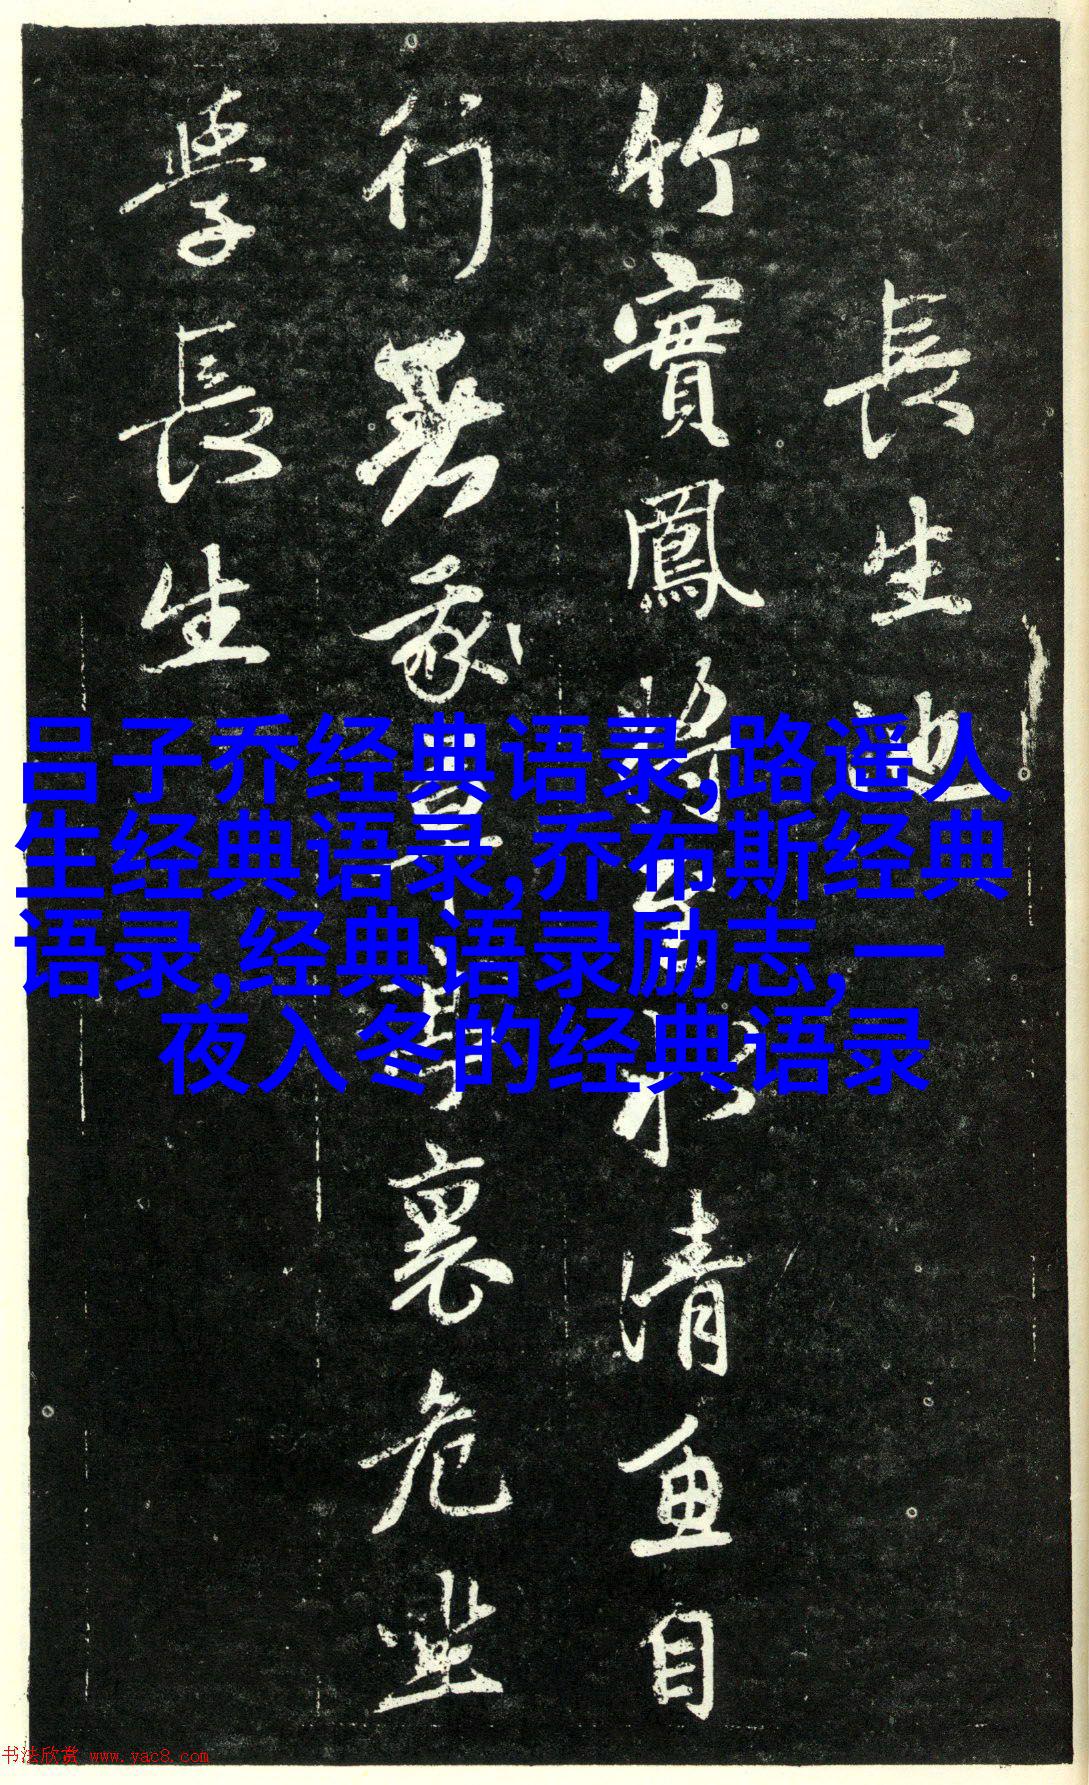 長生池
竹實鳳將至水清魚自
行裏危坐
學長生
吕子乔经典语录,路遥人
生经典语录,乔布斯经典
语录,经典语录励志,一
夜入冬的经典语录
书法欣赏 www.yac8.com